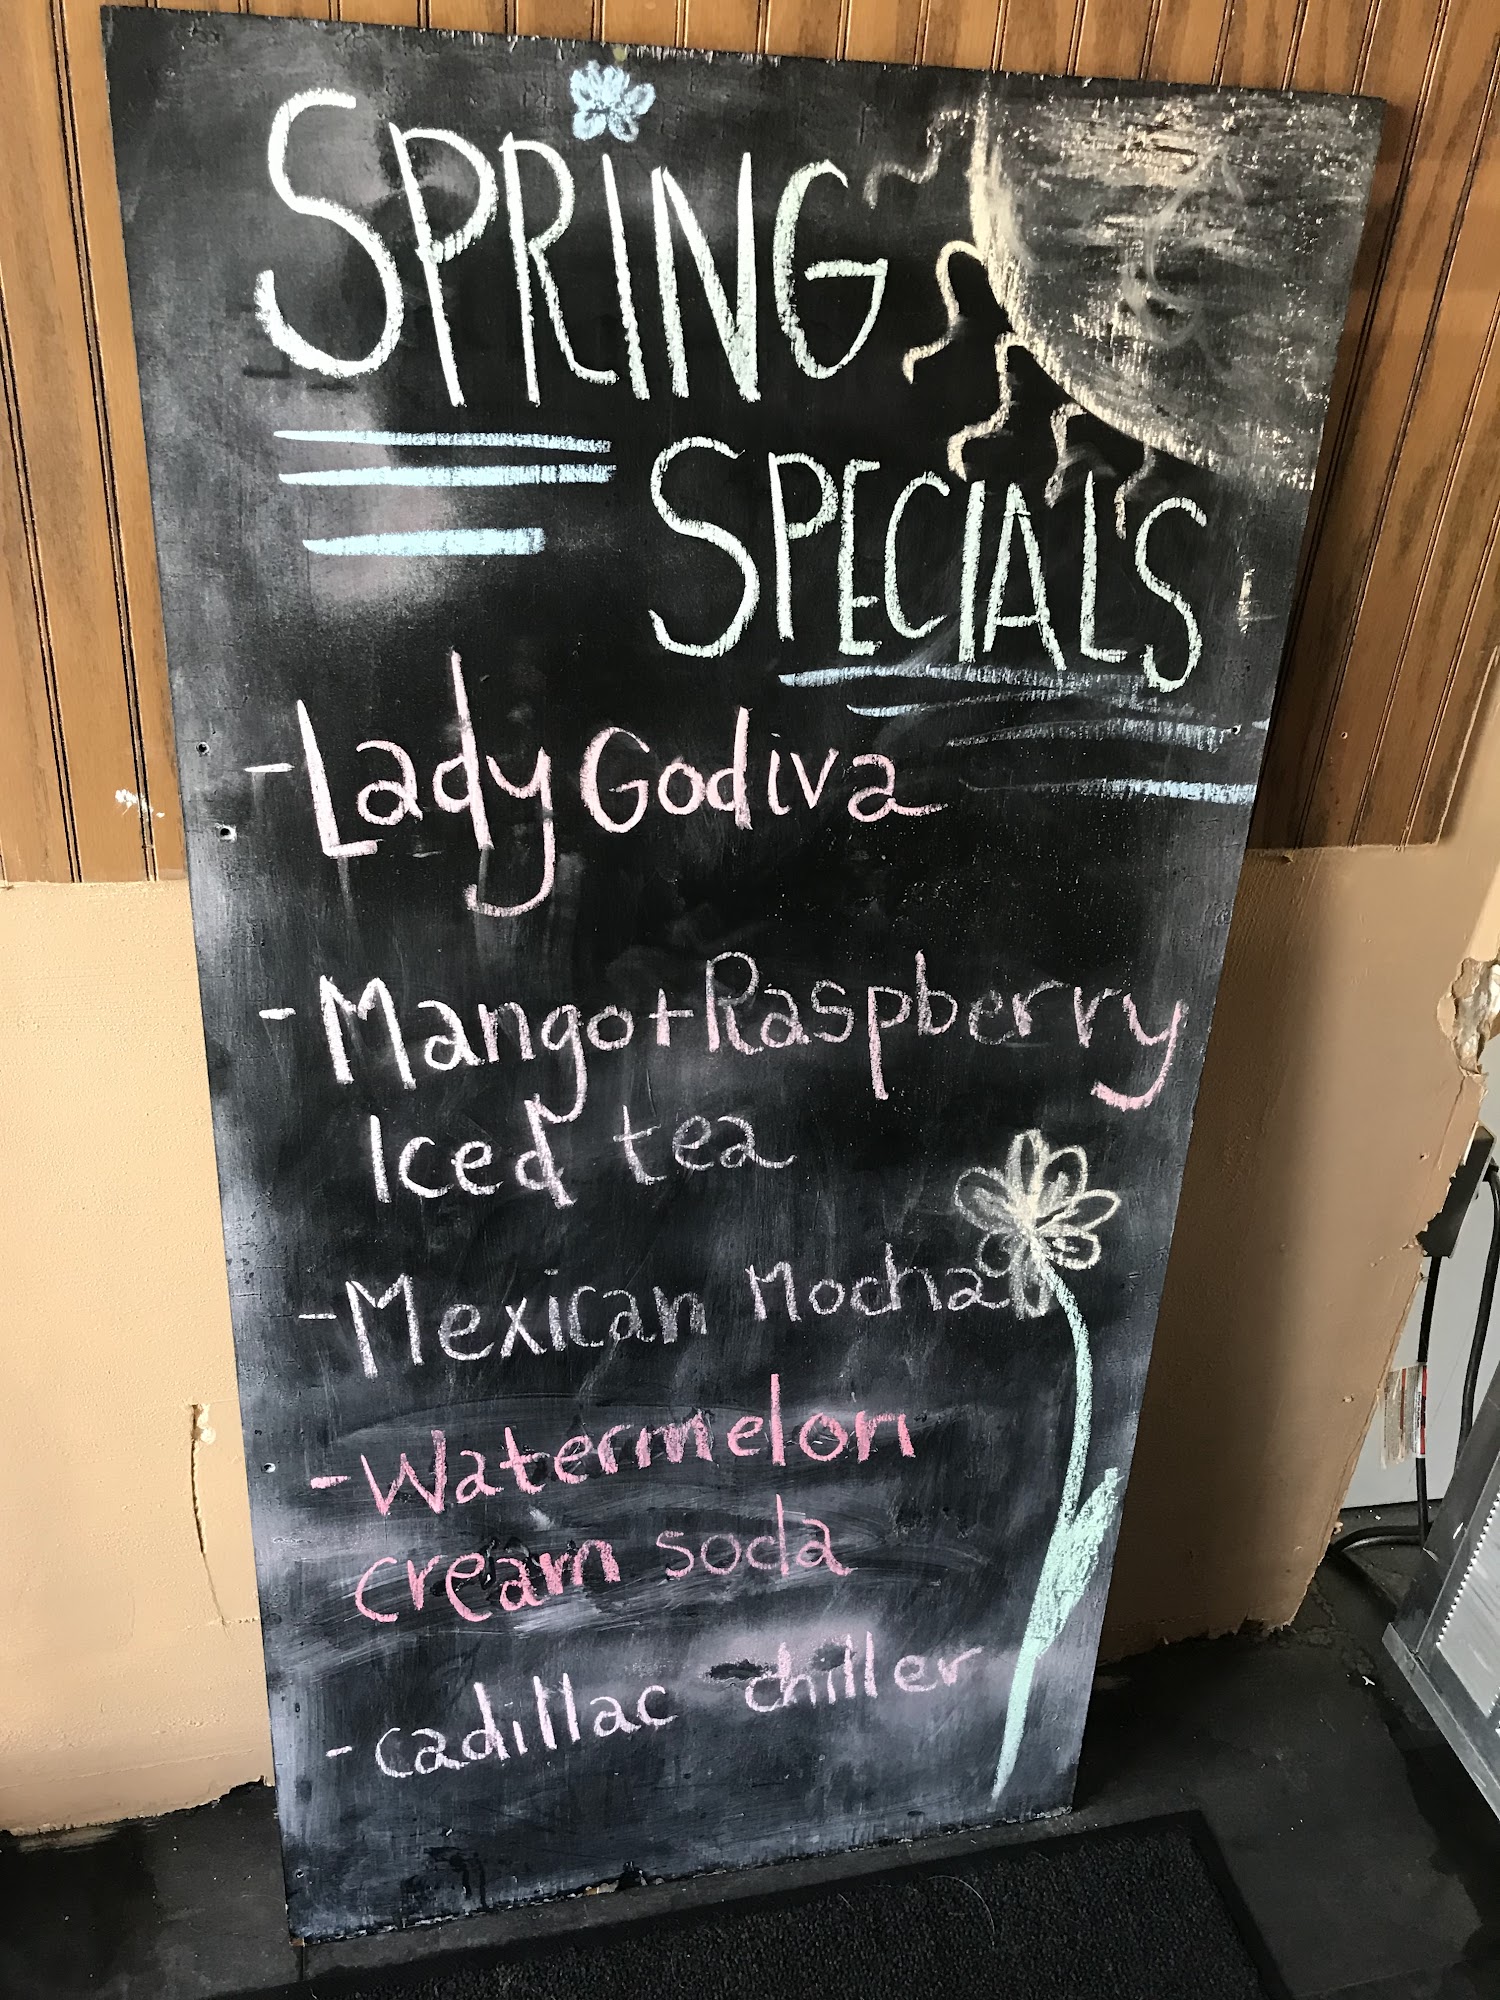 SPRING
SPECIALS
- Lady Godiva
- Mango + Raspberry
Iced tea
- Mexican Mocha
- Watermelon
cream soda
- cadillac chiller